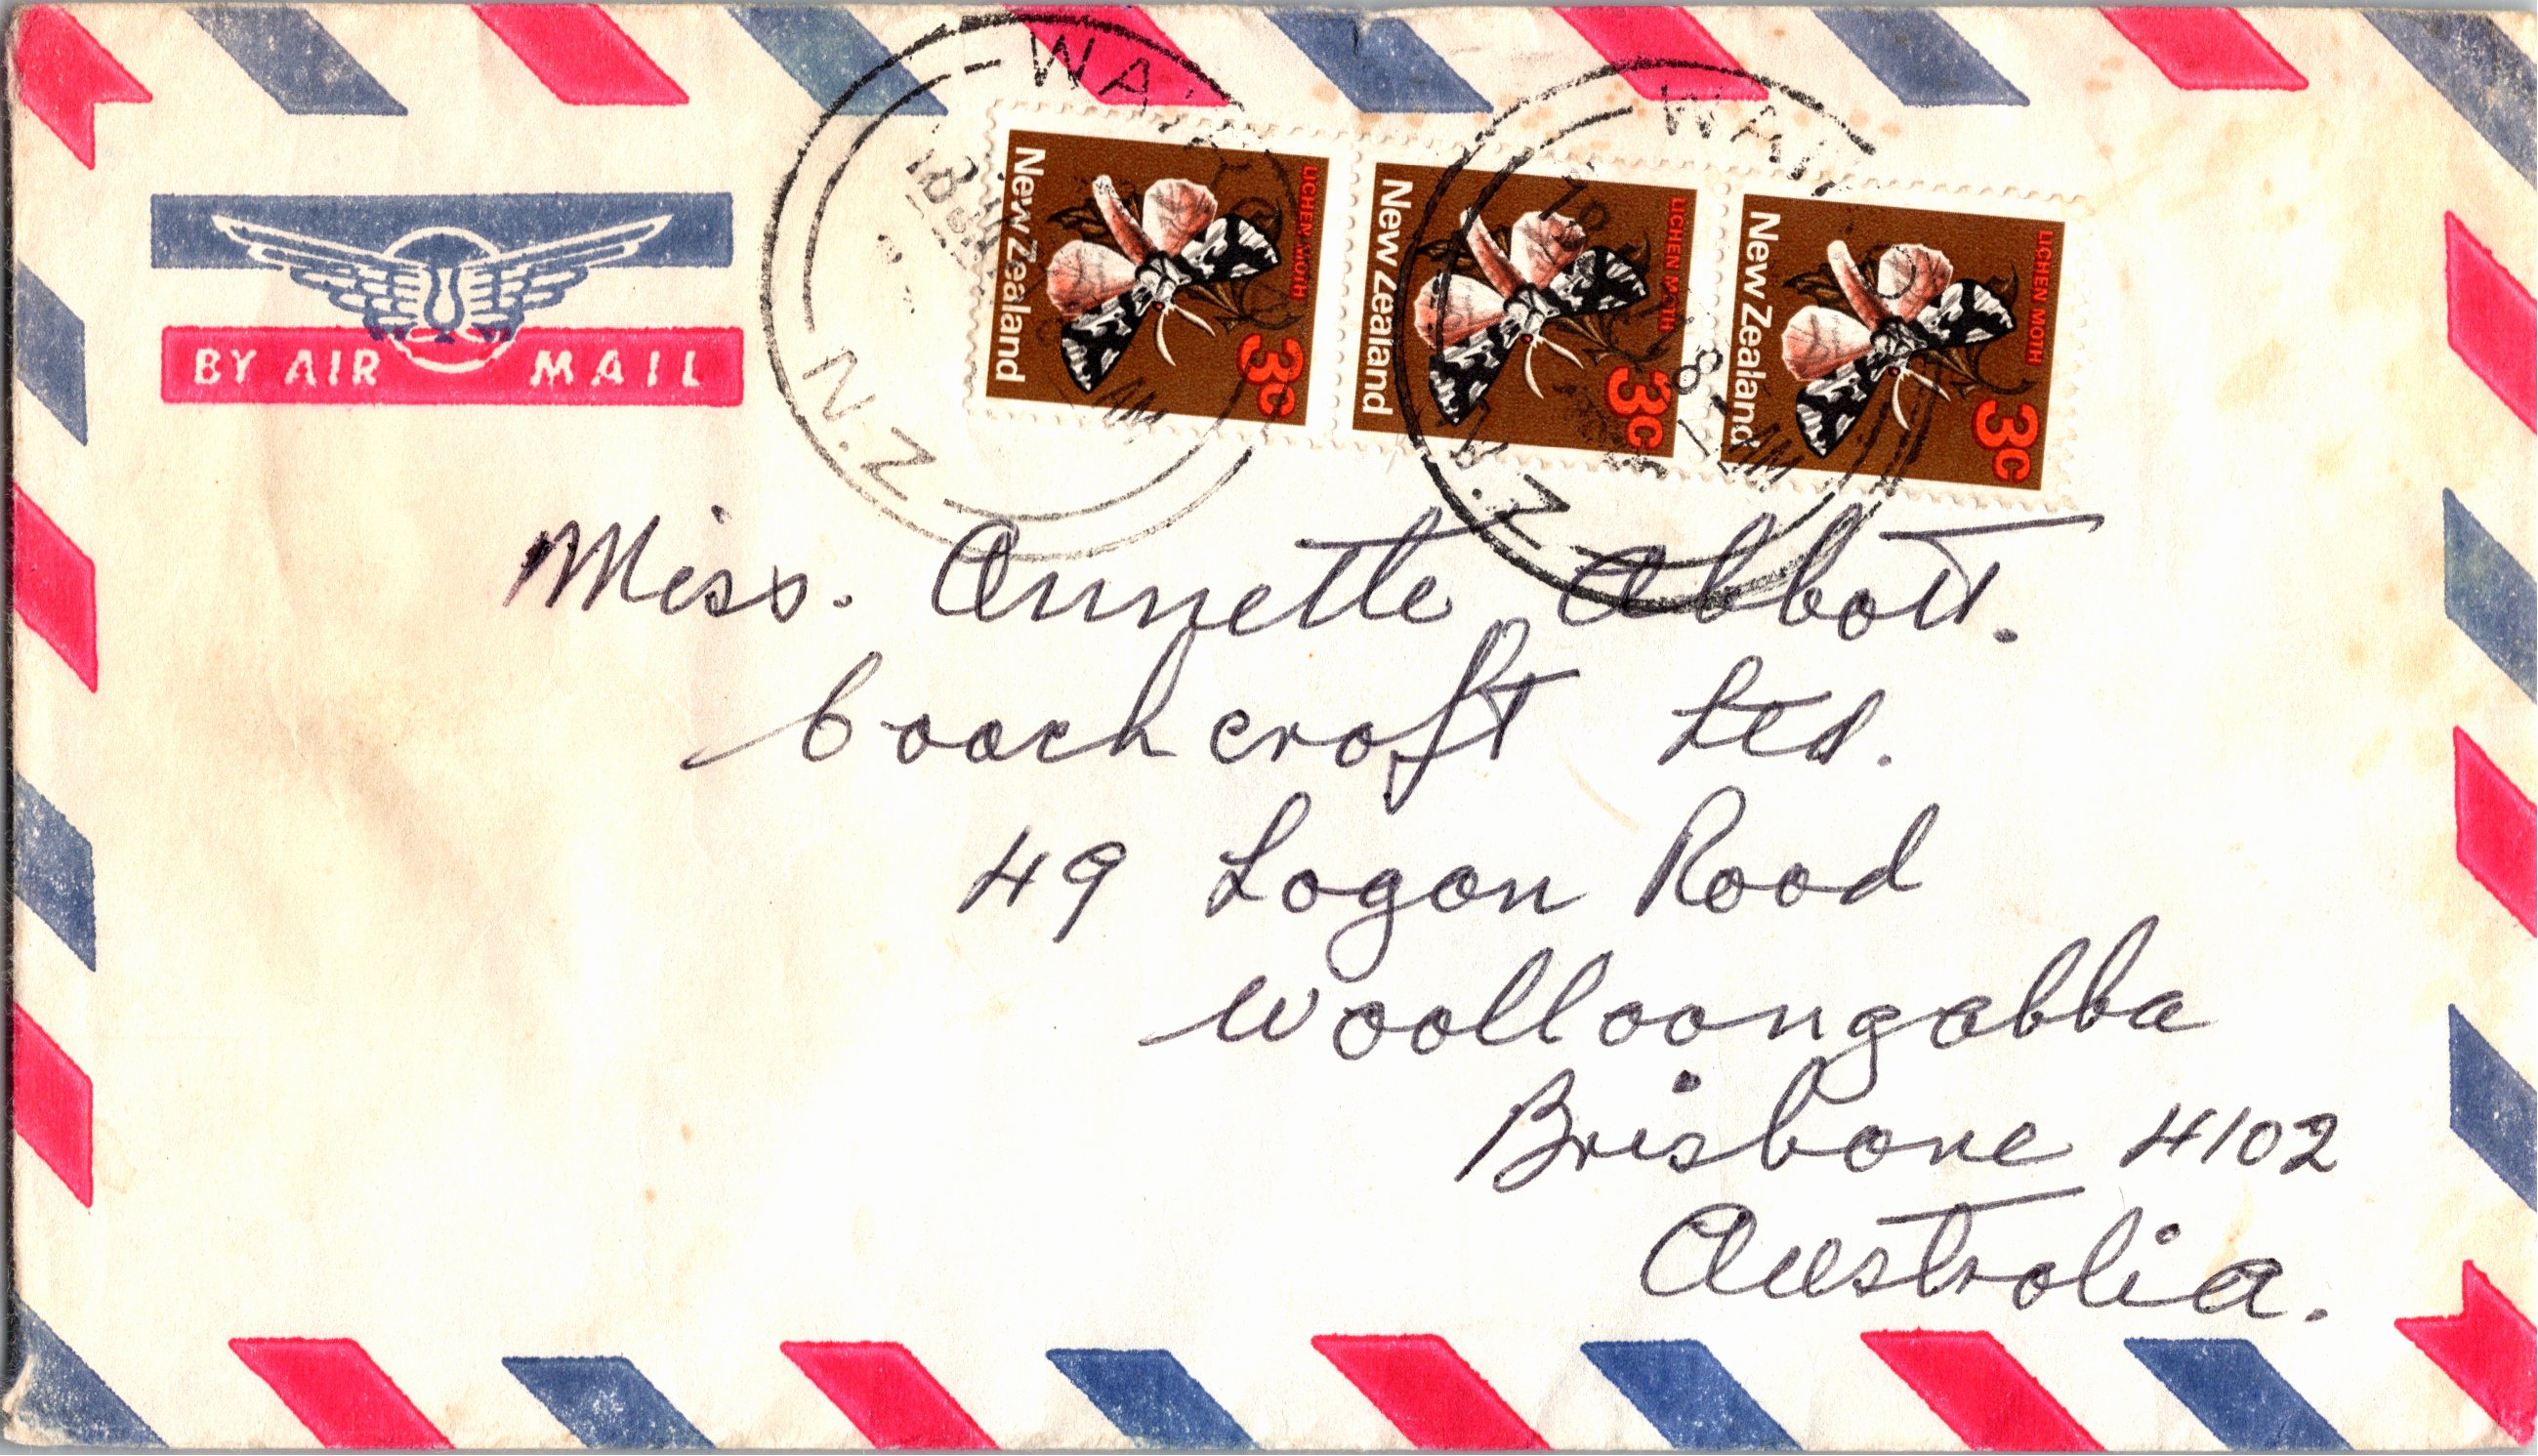 BY AIR MAIL
N.Z.
AM
New Zealand
LICHEN MOTH
3c
N.Z.
8-AM
New Zealand
LICHEN MOTH
3c
New Zealand
LICHEN MOTH
3c
Miss. Annette Abbott.
Coachcroft Ltd.
49 Logan Road
Woolloongabba
Brisbane 4102
Australia.